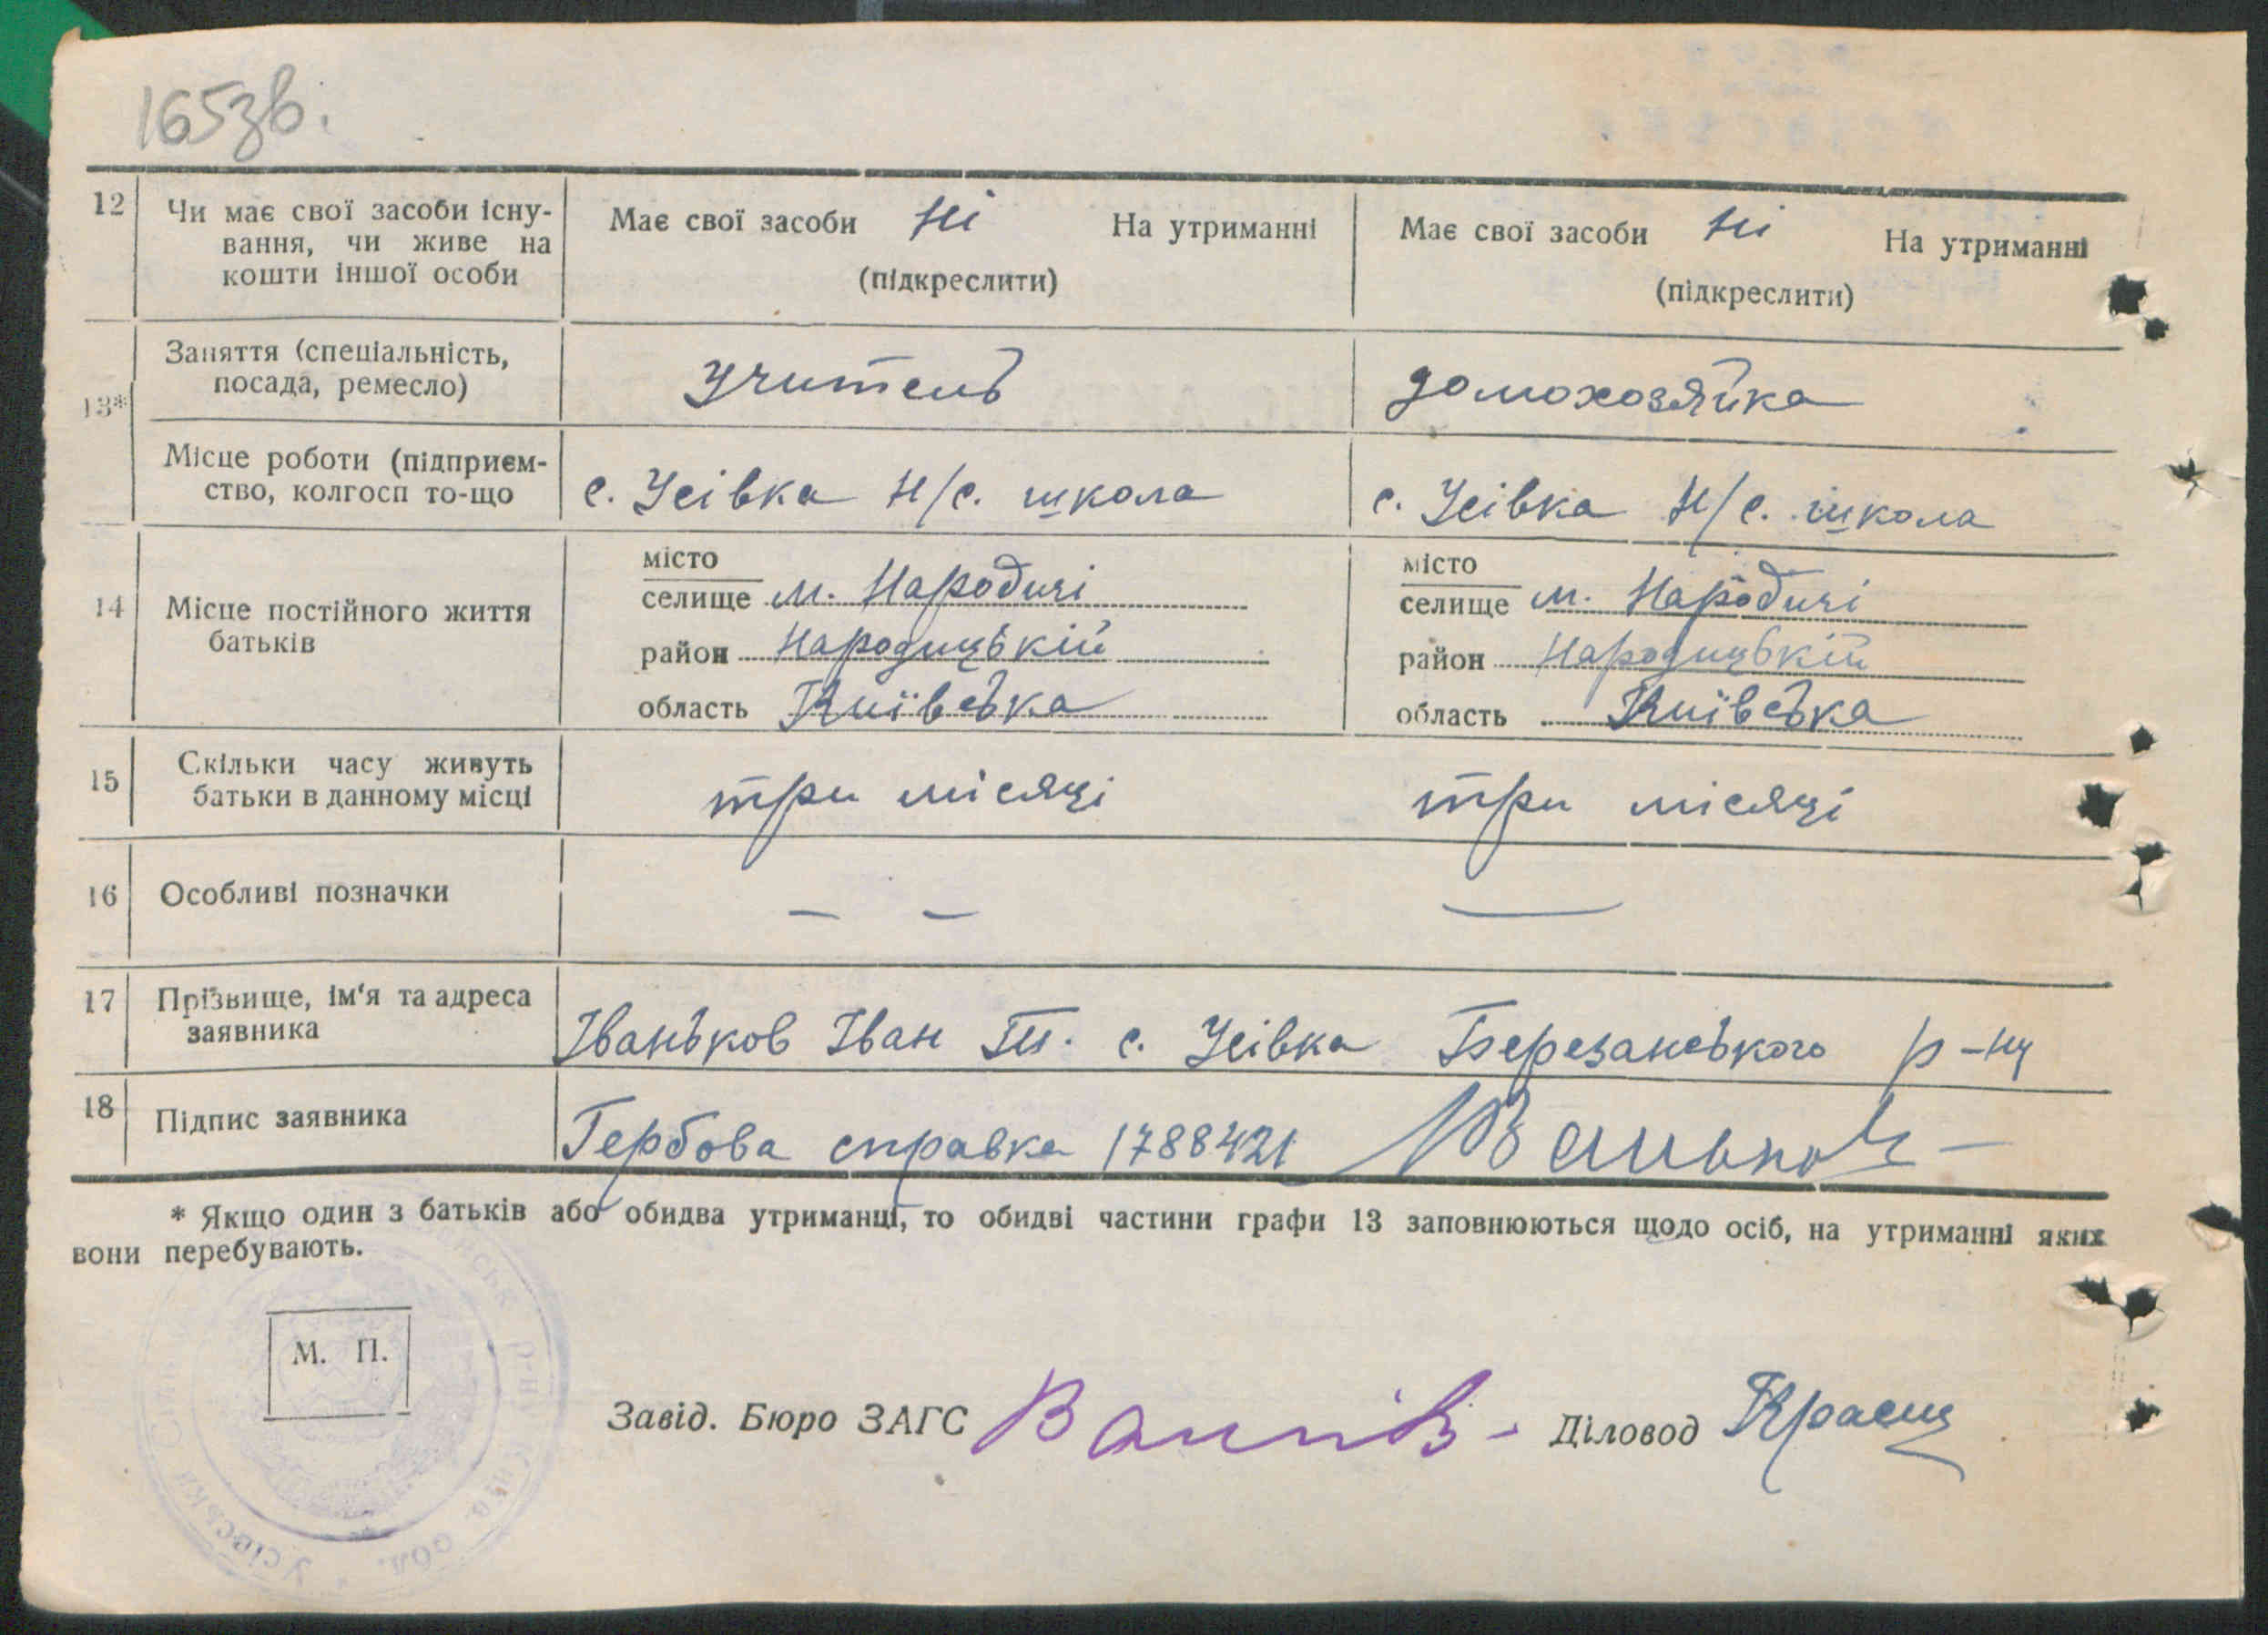 165зв.
12 Чи має свої засоби існу-
вання, чи живе на
кошти іншої особи
Має свої засоби ні На утриманні
(підкреслити)
Має свої засоби ні На утриманні
(підкреслити)
13* Заняття (спеціальність,
посада, ремесло)
учитель
домохозяйка
Місце роботи (підприєм-
ство, колгосп то-що
с. Усівка н/с. школа
с. Усівка н/с. школа
14 Місце постійного життя
батьків
місто
селище м. Народичі
район Народицькій
область Київська
місто
селище м. Народичі
район Народицькій
область Київська
15 Скільки часу живуть
батьки в данному місці
три місяці
три місяці
16 Особливі позначки
— —
—
17 Прізвище, ім'я та адреса
заявника
Іваньков Іван с. Усівка Березанського р-ну
18 Підпис заявника
Гербова справка 1788421
* Якщо один з батьків або обидва утриманці, то обидві частини графи 13 заповнюються щодо осіб, на утриманні яких
вони перебувають.
М. П.
Завід. Бюро ЗАГС
Діловод